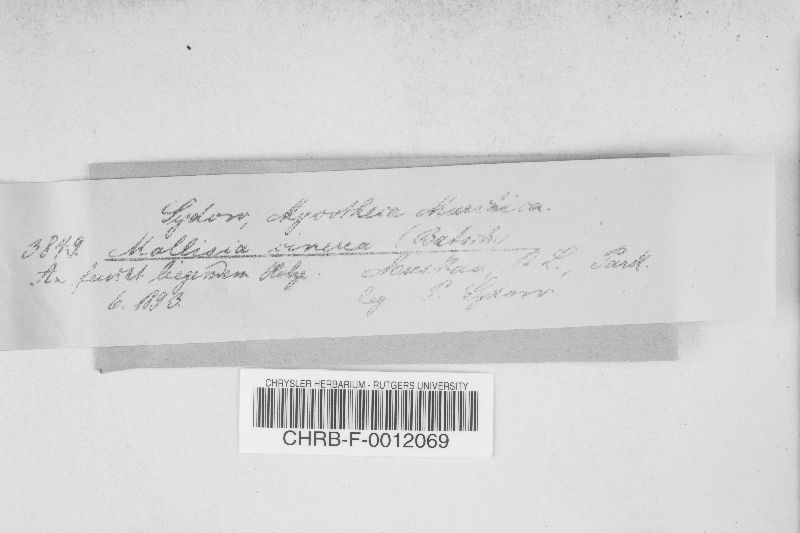 Sydow, Mycotheca Marchica.
3849. Mollisia cinerea (Batsch)
An feucht liegendem Holze. Muskau, O. L., Park.
6. 1893. leg. P. Sydow
CHRYSLER HERBARIUM - RUTGERS UNIVERSITY
CHRB-F-0012069